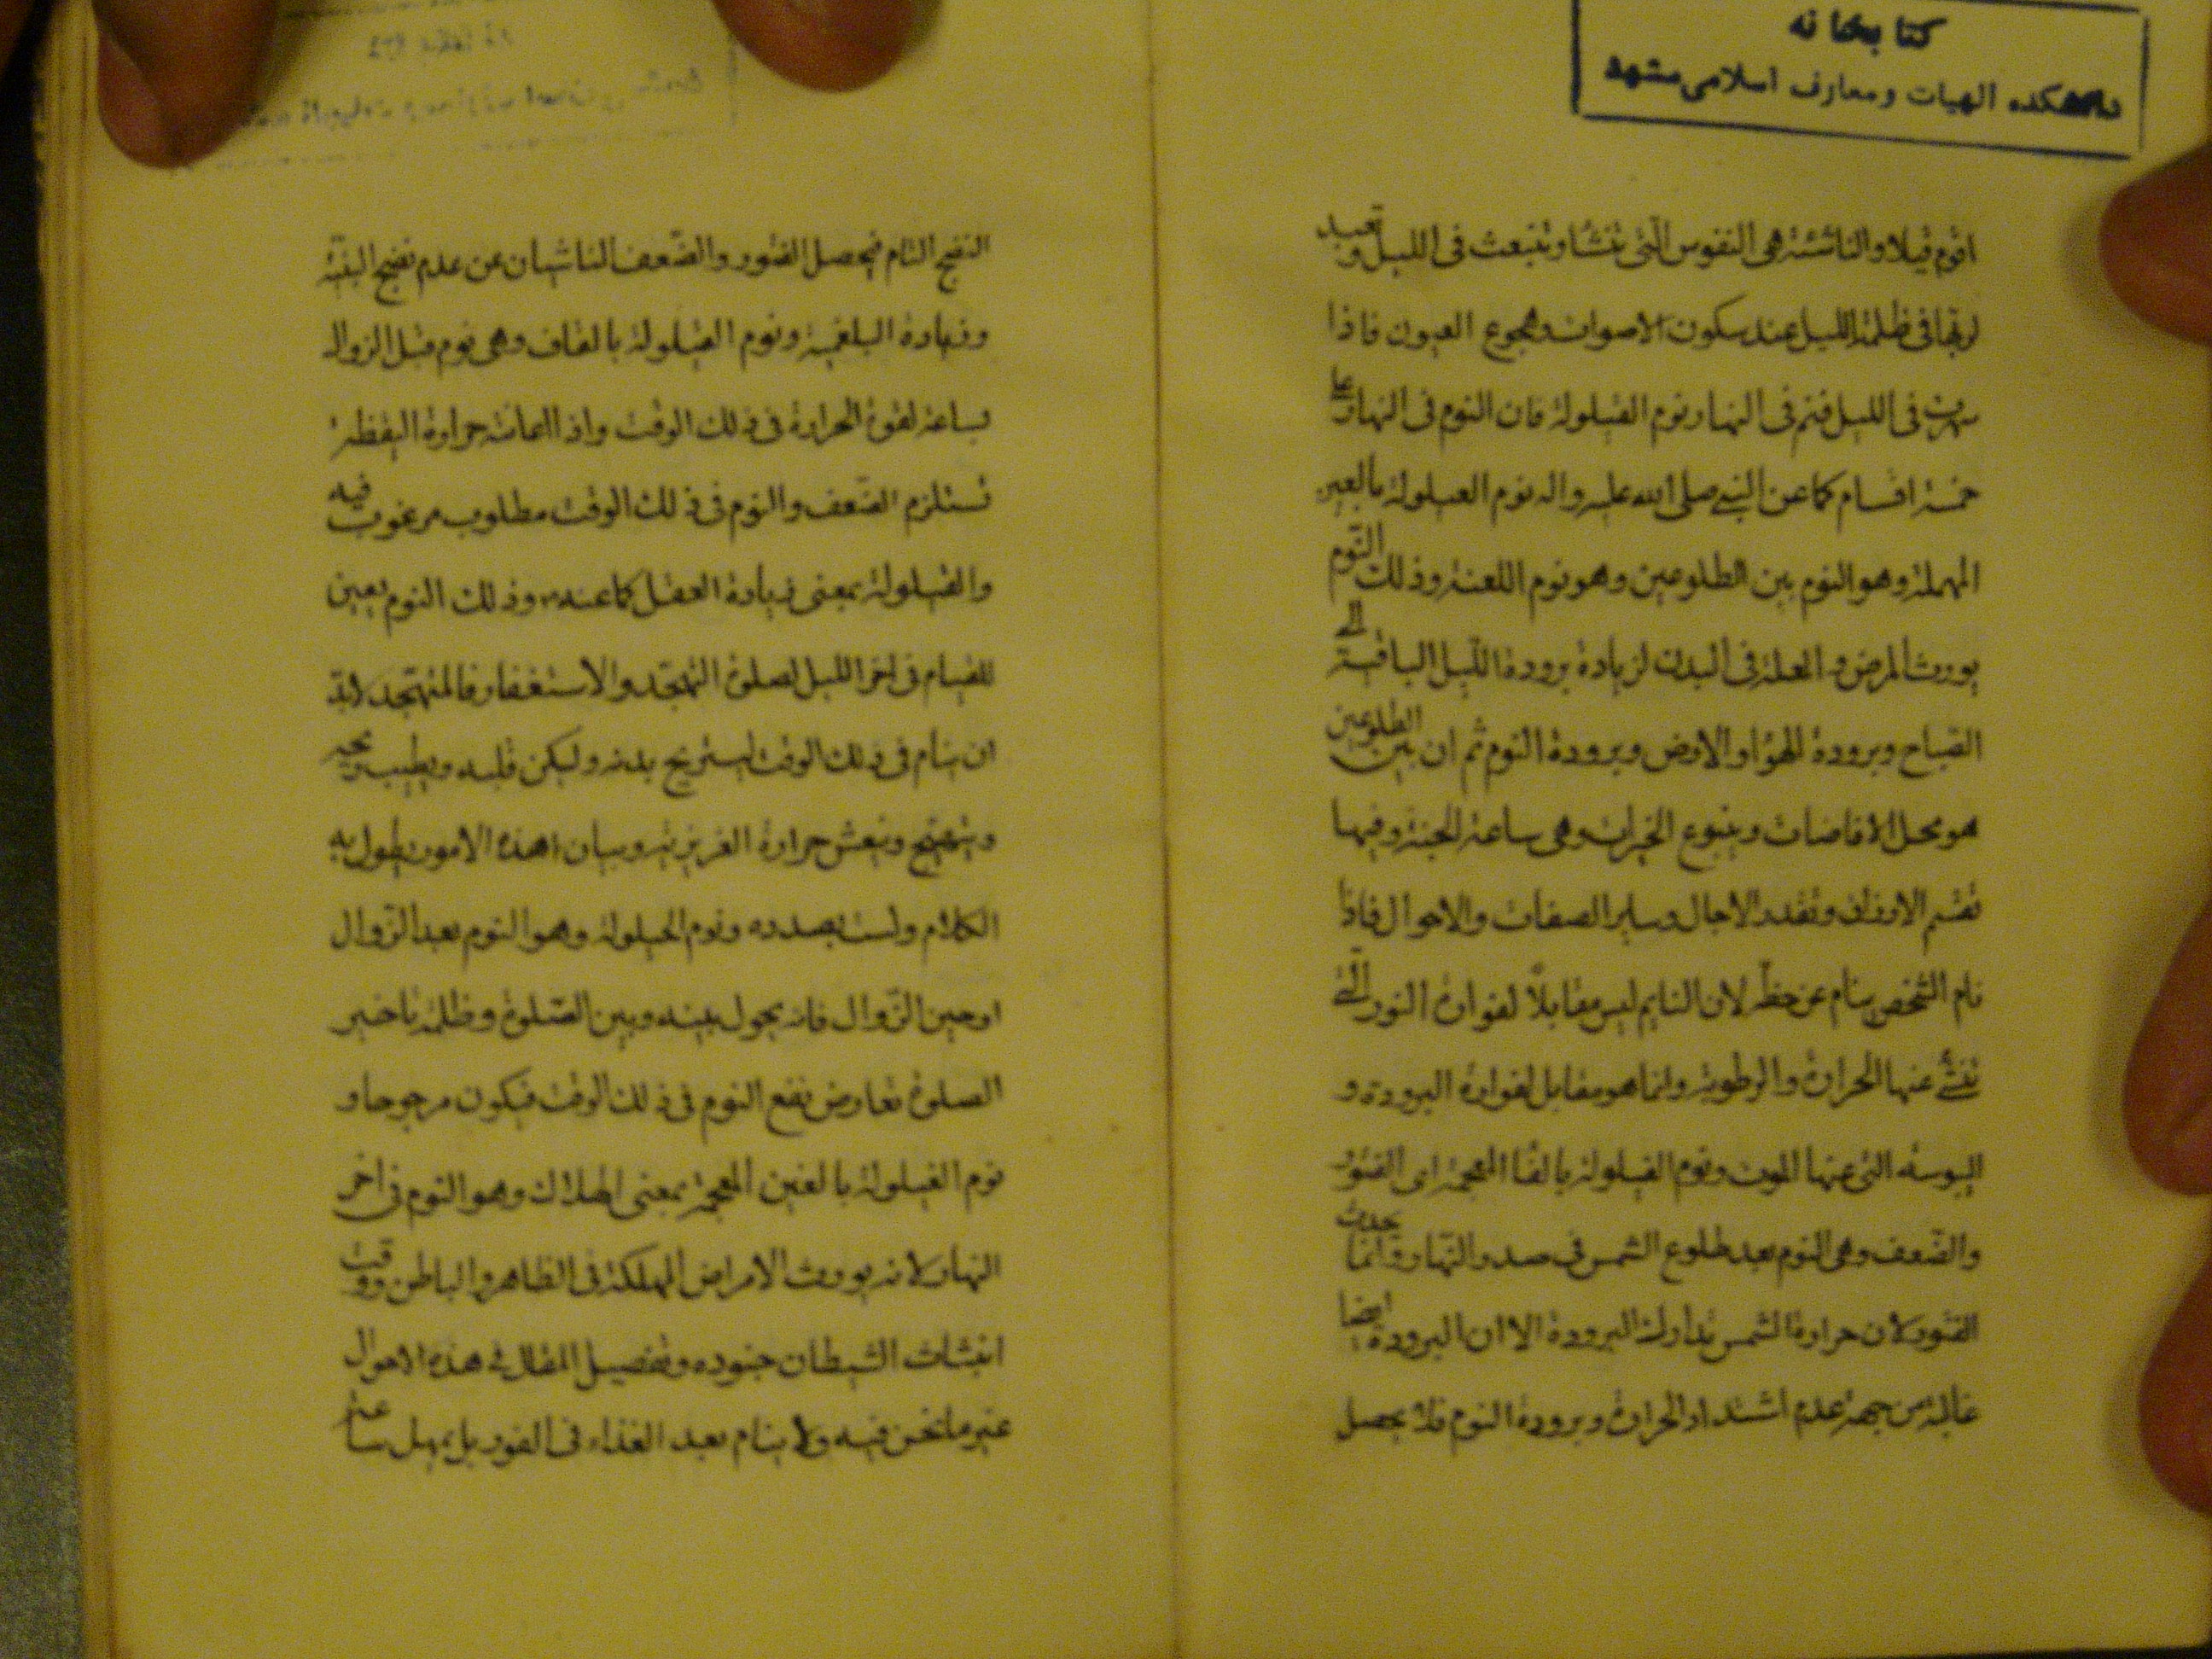 كتابخانه
دانشكده الهيات ومعارف اسلامى مشهد
اقوم قيلا والناشئة هى النفوس التى تنشأ وتنبعث فى الليل وتعبد
لربها فى ظلمة الليل عند سكون الاصوات وهجوع العيون فاذا
سهرت فى الليل فنم فى النهار نوم القيلولة فان النوم فى النهار على
خمسة اقسام كما عن النبى صلى الله عليه واله نوم العيلولة بالعين
المهملة وهو النوم بين الطلوعين وهو نوم اللعنة وذلك النوم
يورث المرض والعلة فى البدن لزيادة برودة الليل الباقية الى
الصباح وبرودة الهواء والارض وبرودة النوم ثم ان بين الطلوعين
هو محل الافاضات وينبوع الخيرات وهى ساعة الجنة وفيها
تقسم الارزاق وتقدر الاجال وساير الصفات والاحوال فاذا
نام الشخص ينام عن حظه لان النايم ليس مقابلاً لفوارة النور التى
تنشئ عنها الحرارة والرطوبة وانما هو مقابل لفوارة البرودة و
اليبوسه التى عنها الموت ونوم الفيلولة بالفا المعجمة اى الفتور
والضعف وهى النوم بعد طلوع الشمس فى صدر النهار وانما يحدث
الفتور لان حرارة الشمس تدارك البرودة الا ان البرودة ايضا
غالبة من جهة عدم اشتداد الحرارة وبرودة النوم فلا يحصل
النضج التام فيحصل الفتور والضعف الناشيان عن عدم نضج البنية
وزيادة البلغمية ونوم القيلولة بالقاف وهى نوم قبل الزوال
بساعة لقوة الحرارة فى ذلك الوقت واذا اعانته حرارة اليقظة
تستلزم الضعف والنوم فى ذلك الوقت مطلوب مرغوب فيه
والقيلولة بمعنى زيادة العقل كما عنه وذلك النوم يعين
للقيام فى اخر الليل لصلوة التهجد والاستغفار فالمتهجد لابد
ان ينام فى ذلك الوقت ليستريح بدنه وليكن قلبه ويطيب
ويتهيج وينعش حرارة الغريزية وبيان هذه الامور يطول به
الكلام ولست بصدده ونوم الحيلولة وهو النوم بعد الزوال
او حين الزوال فانه يحول بينه وبين الصلوة وظلمة تاخير
الصلوة تعارض نفع النوم فى ذلك الوقت فيكون مرجوحا و
نوم الغيلولة بالغين المعجمة بمعنى الهلاك وهو النوم فى اخر
النهار لانه يورث الامراض المهلكة فى الظاهر والباطن ووقت
انبثات الشيطان جنوده وتفصيل المقال فى هذه الاحوال
غير ما نحن فيه ولا ينام بعد الغذاء فى الفور بل يمهل ساعة